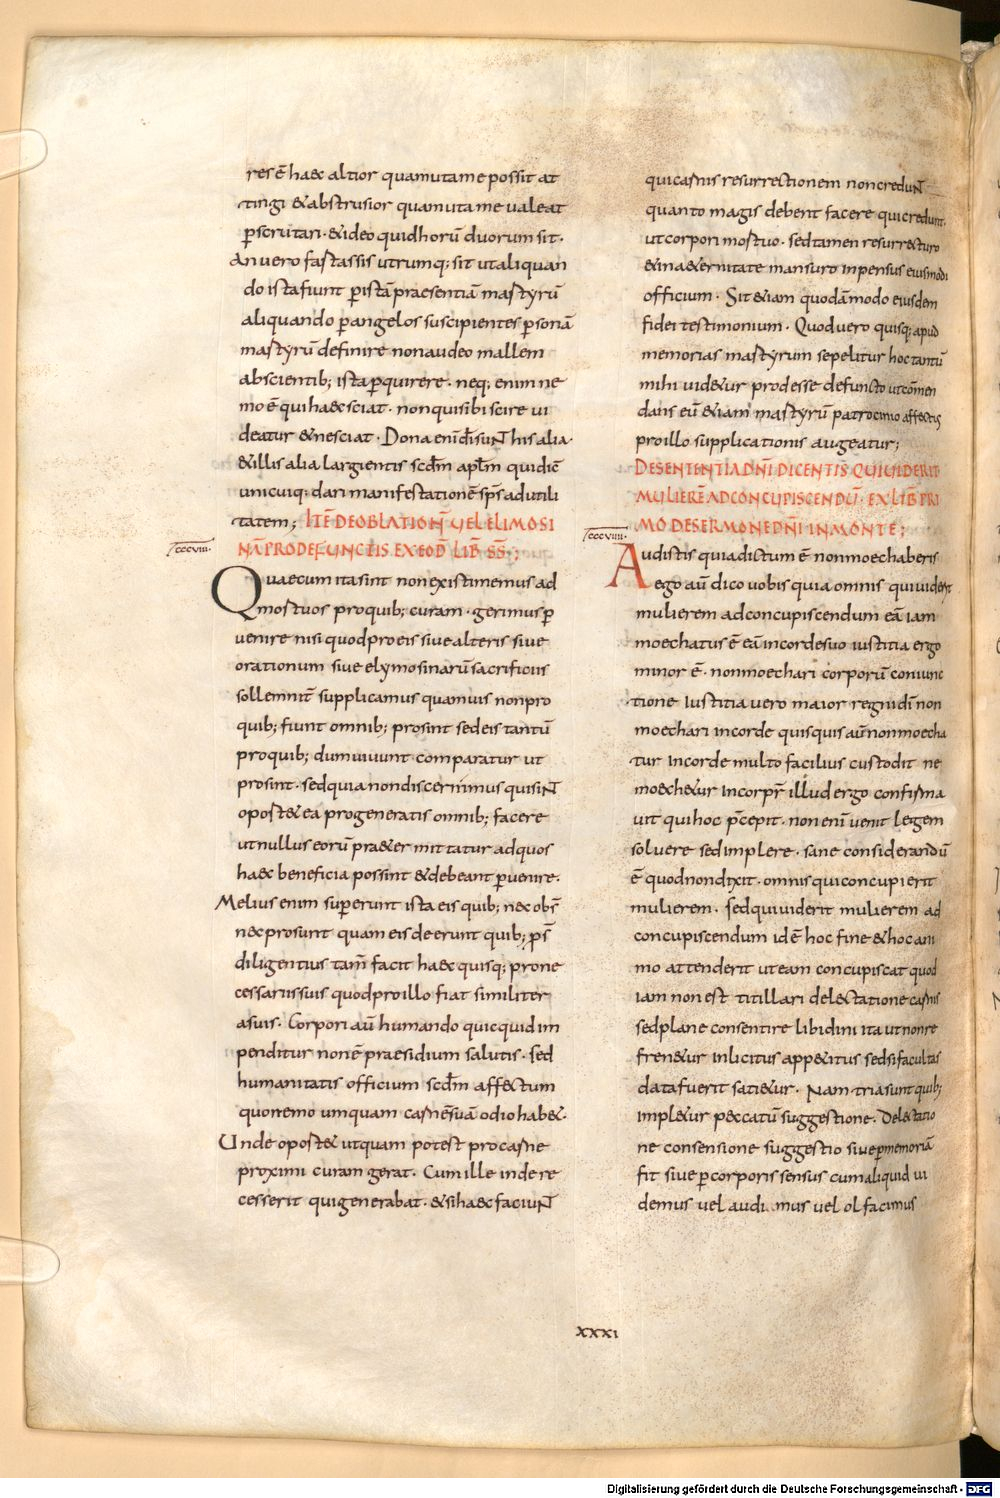 res ē haec altior quam ut a me possit at
tingi & abstrusior quam ut a me ualeat
ꝑscrutari · & ideo quid horū duorum sit ·
An uero fortassis utrumq; sit ut aliquan
do ista fiunt ꝑ istā praesentiā martyrū
aliquando ꝑ angelos suscipientes ꝑsonā
martyrū definire non audeo mallem
ab scientib; ista ꝑquirere · neq; enim ne
mo ē qui haec sciat · non qui sibi scire ui
deatur & nesciat · Dona enī dī sunt his alia ·
& illis alia largientis scdm̄ aplm̄ qui dic̄
unicuiq; dari manifestationē sp̄s ad utili
tatem; ITĒ DE OBLATION̄ UEL ELIMOSI
cccviii·
NĀ PRO DEFUNCTIS EX EOD̄ LIB̄ SS̄ ;
Quae cum ita sint non existimemus ad
mortuos pro quib; curam · gerimus ꝑ
uenire nisi quod pro eis siue alteris siue
orationum siue elymosinarū sacrificiis
sollemnit̄ supplicamus quamuis non pro
quib; fiunt omnib; prosint sed eis tantū
pro quib; dum uiuunt comparatur ut
prosint · sed quia non discernimus qui sint
oportet ea pro generatis omnib; facere
ut nullus eorū praetermittatur ad quos
haec beneficia possint & debeant ꝑuenire ·
Melius enim superunt ista eis quib; nec obs̄
nec prosunt quam eis deerunt quib; ꝓs̄
diligentius tam̄ facit haec quisq; pro ne
cessariis suis quo pro illo fiat similiter
a suis · Corpori aū humando quicquid im
penditur non ē praesidium salutis · sed
humanitatis officium scdm̄ affectum
quo nemo umquam carnē suā odio habet ·
Unde oportet ut quam potest pro carne
proximi curam gerat · Cum ille inde re
cesserit qui generabat · & si haec faciunt
qui carnis resurrectionem non credunt
quanto magis debent facere qui credunt ·
ut corpori mortuo · sed tamen resurrecturo
& in aeternitate mansuro inpensus eiusmodi
officium · Sit etiam quodāmodo eiusdem
fidei testimonium · Quod uero quisq; apud
memorias martyrum sepelitur hoc tantū
mihi uidetur prodesse defuncto ut cōmen
dans eū etiam martyrū patrocinio affectus
pro illo supplicationis augeatur;
DE SENTENTIA DN̄I DICENTIS QUI UIDERIT
MULIERĒ AD CONCUPISCENDŪ · EX LIB̄ PRI
MO DE SERMONE DN̄I IN MONTE ;
cccviiii·
Audistis quia dictum ē non moechaberis
ego aū dico uobis quia omnis qui uiderit
mulierem ad concupiscendum eā iam
moechatus ē eā in corde suo iustitia ergo
minor ē · non moechari corporū coniunc
tione iustitia uero maior regni dī non
moechari in corde quisquis aū non moecha
tur in corde multo facilius custodit ne
moechetur in corpr̄ illud ergo confirma
uit qui hoc p̄cepit · non enī uenit legem
soluere sed implere · sane considerandū
ē quod non dixit · omnis qui concupierit
mulierem · sed qui uiderit mulierem ad
concupiscendum id ē hoc fine & hoc ani
mo attenderit ut eam concupiscat quod
iam non est titillari delectatione carnis
sed plane consentire libidini ita ut non re
frenetur inlicitus appetitus sed si facultas
data fuerit satietur · Nam tria sunt quib;
impletur peccatū suggestione · Delectatio
ne consensione suggestio siue ꝑ memoriā
fit siue ꝑ corporis sensus cum aliquid ui
demus uel audimus uel olfacimus
xxxi
Digitalisierung gefördert durch die Deutsche Forschungsgemeinschaft - DFG